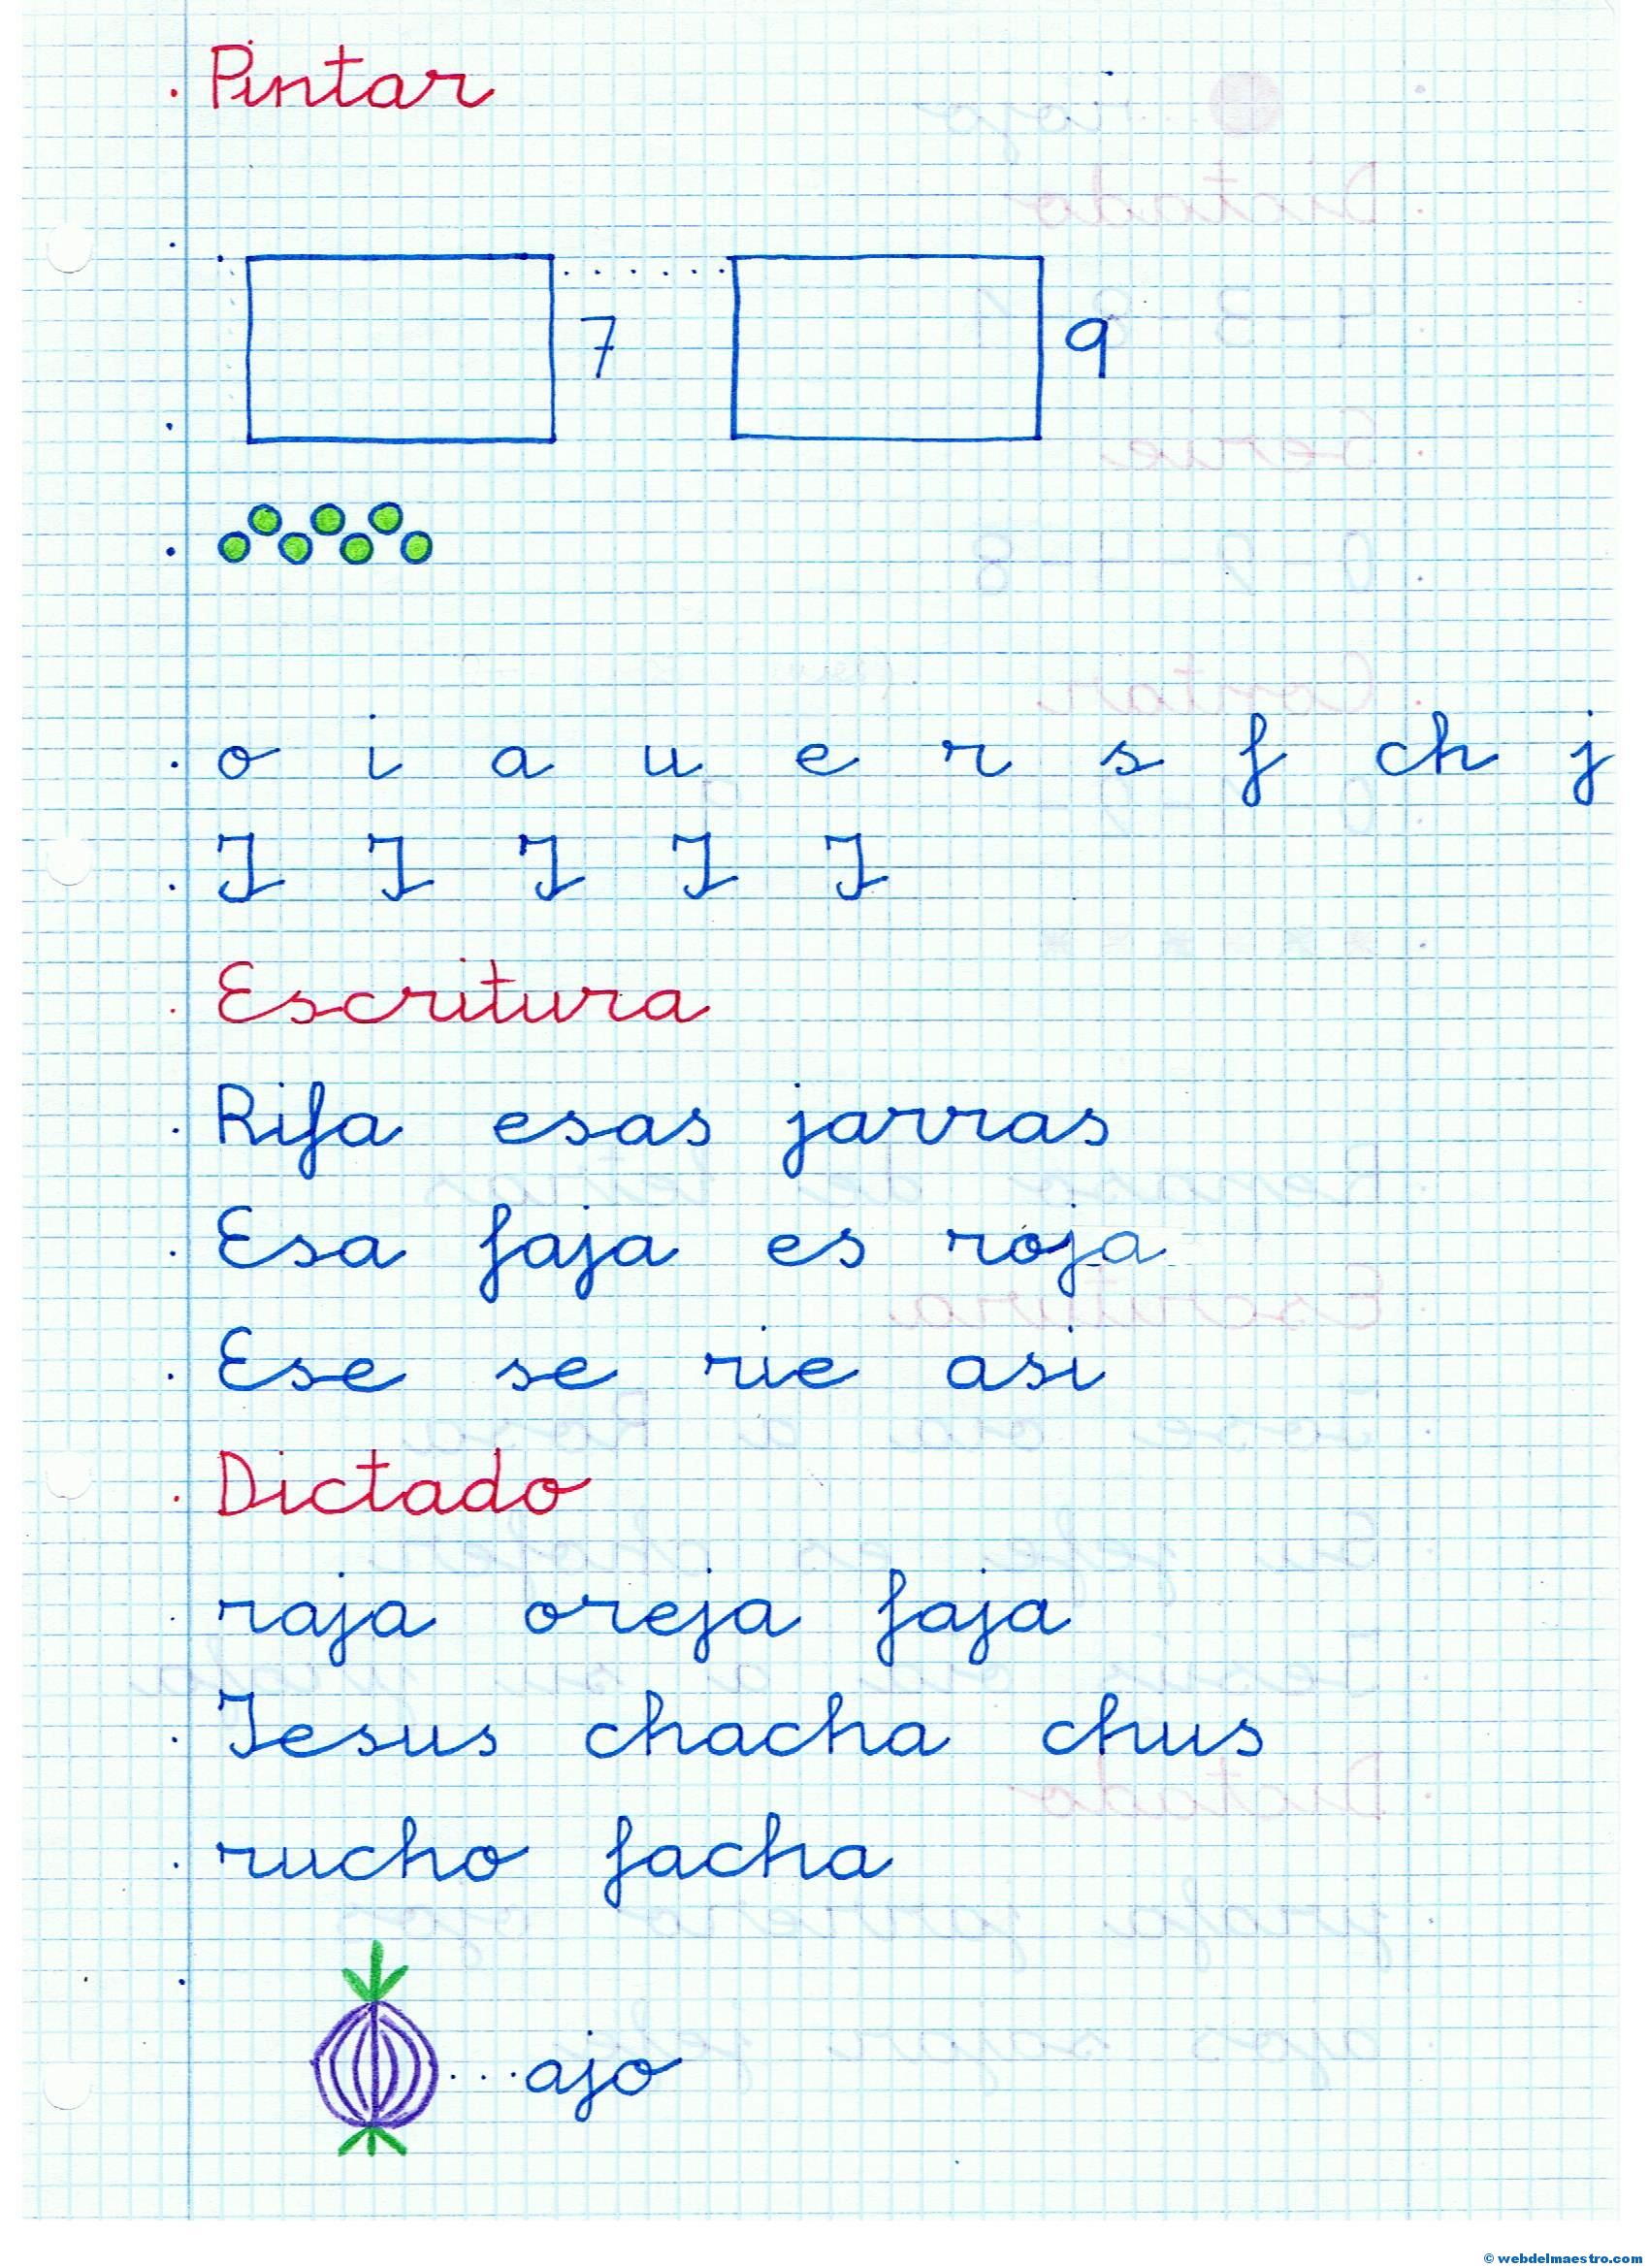 Pintar
7 9
o i a u e r s f ch j
J J J J J
Escritura
Rifa esas jarras
Esa faja es roja
Ese se rie asi
Dictado
raja oreja faja
Jesus chacha chus
rucho facha
ajo
© webdelmaestro.com